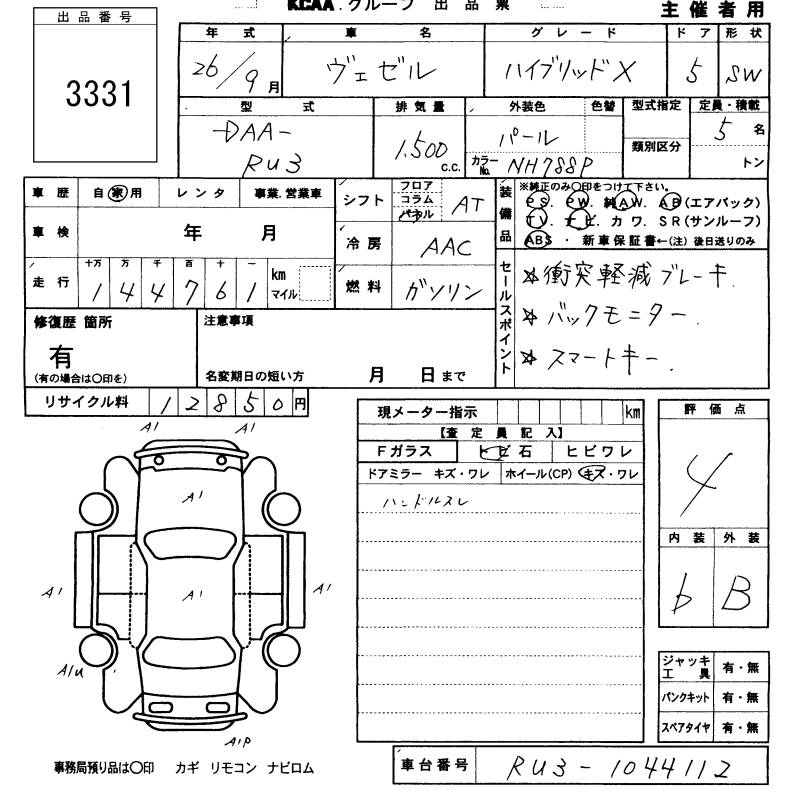 KCAA.グループ 出品票
主催者用
出品番号
3331
年式 車名 グレード ドア 形状
26/9月 ヴェゼル ハイブリッドX 5 SW
型式 排気量 外装色 色替 型式指定 定員・積載
DAA-
RU3
1,500 c.c.
パール
カラーNo. NH788P
類別区分
5 名
トン
車歴 自家用 レンタ 事業.営業車
車検 年 月
走行 十万 万 千 百 十 一
1 4 4 7 6 1 km マイル
シフト フロア コラム パネル AT
冷房 AAC
燃料 ガソリン
装備品
※純正のみ〇印をつけて下さい。
PS. PW. 純AW. AB(エアバック)
TV. ナビ. カワ. SR(サンルーフ)
ABS ・ 新車保証書←(注) 後日送りのみ
セールスポイント
☆衝突軽減ブレーキ.
☆バックモニター.
☆スマートキー.
修復歴 箇所
有
(有の場合は〇印を)
注意事項
名変期日の短い方 月 日まで
リサイクル料 12850円
A1 A1
A1
A1 A1 A1
A1U
A1P
事務局預り品は〇印 カギ リモコン ナビロム
現メーター指示 km
【査定員記入】
Fガラス トビ石 ヒビワレ
ドアミラー キズ・ワレ ホイール(CP) キズ・ワレ
ハンドルスレ
評価点
4
内装 外装
b B
ジャッキ 工具 有・無
パンクキット 有・無
スペアタイヤ 有・無
車台番号 RU3-1044112